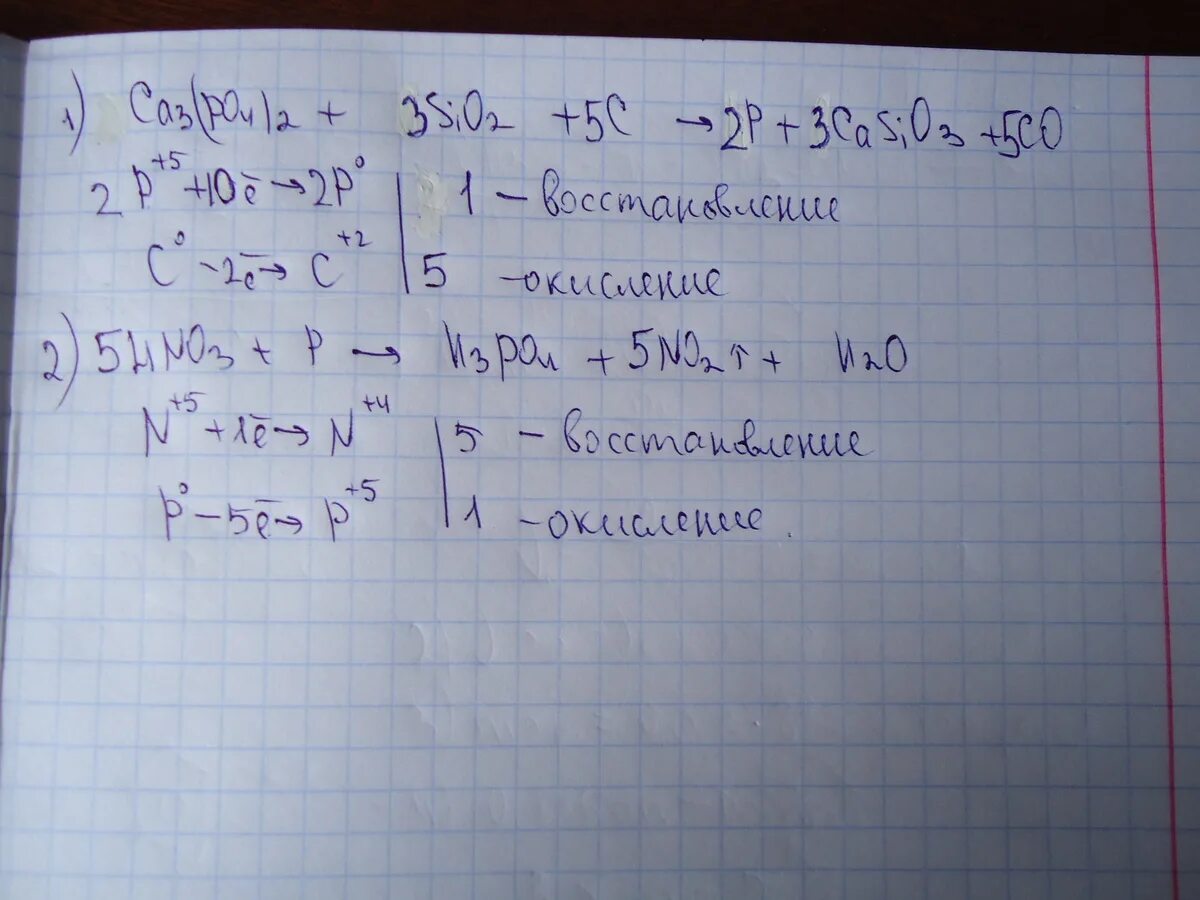 1) Ca3(PO4)2 + 3SiO2 + 5C → 2P + 3CaSiO3 + 5CO
2P⁺⁵ + 10ē → 2P⁰ | 1 – восстановление
C⁰ – 2ē → C⁺² | 5 – окисление
2) 5HNO3 + P → H3PO4 + 5NO2↑ + H2O
N⁺⁵ + 1ē → N⁺⁴ | 5 – восстановление
P⁰ – 5ē → P⁺⁵ | 1 – окисление.